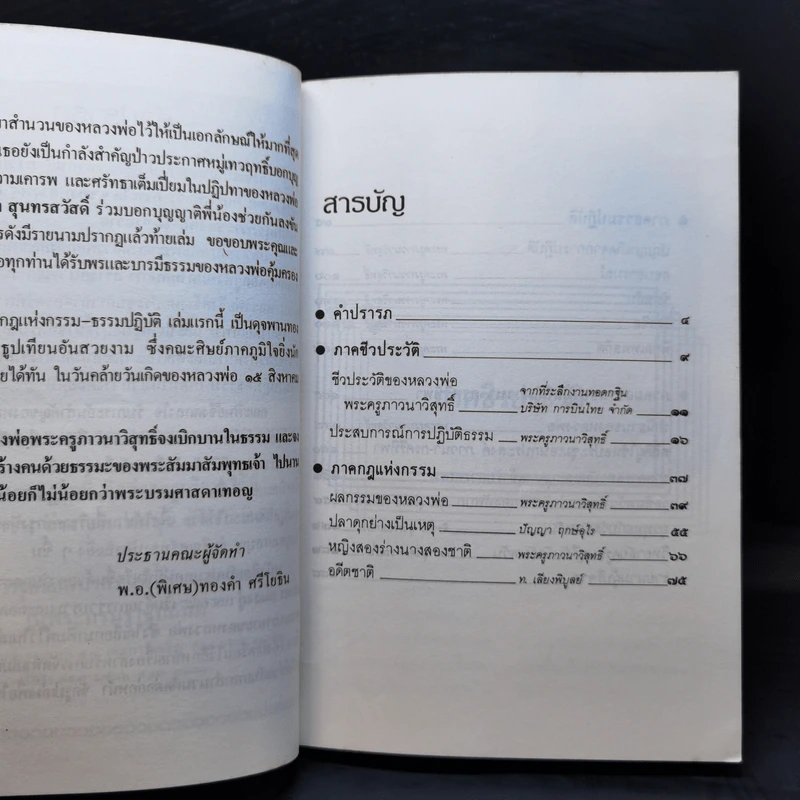 าสำนวนของหลวงพ่อไว้ให้เป็นเอกลักษณ์ให้มากที่สุด
เธอยังเป็นกำลังสำคัญป่าวประกาศหมู่เทวฤทธิ์บอกบุญ
วามเคารพ และศรัทธาเต็มเปี่ยมในปฏิปทาของหลวงพ่อ
สุนทรสวัสดิ์ ร่วมบอกบุญญาติพี่น้องช่วยกันลงขัน
รดังมีรายนามปรากฏแล้วท้ายเล่ม ขอขอบพระคุณและ
อทุกท่านได้รับพรและบารมีธรรมของหลวงพ่อคุ้มครอง
กฎแห่งกรรม-ธรรมปฏิบัติ เล่มแรกนี้ เป็นดุจพานทอง
ธูปเทียนอันสวยงาม ซึ่งคณะศิษย์ภาคภูมิใจยิ่งนัก
ยได้ทัน ในวันคล้ายวันเกิดของหลวงพ่อ ๑๕ สิงหาคม
งพ่อพระครูภาวนาวิสุทธิ์จงเบิกบานในธรรม และจง
ร้างคนด้วยธรรมะของพระสัมมาสัมพุทธเจ้า ไปนาน
น้อยก็ไม่น้อยกว่าพระบรมศาสดาเทอญ
ประธานคณะผู้จัดทำ
พ.อ.(พิเศษ)ทองคำ ศรีโยธิน
สารบัญ
● คำปรารภ ๔
● ภาคชีวประวัติ ๙
ชีวประวัติของหลวงพ่อ จากที่ระลึกงานทอดกฐิน
พระครูภาวนาวิสุทธิ์ บริษัท การบินไทย จำกัด ๑๑
ประสบการณ์การปฏิบัติธรรม พระครูภาวนาวิสุทธิ์ ๑๖
● ภาคกฎแห่งกรรม ๓๗
ผลกรรมของหลวงพ่อ พระครูภาวนาวิสุทธิ์ ๓๙
ปลาดุกย่างเป็นเหตุ ปัญญา ฤกษ์อุไร ๕๕
หญิงสองร่างนางสองชาติ พระครูภาวนาวิสุทธิ์ ๖๖
อดีตชาติ ท. เลียงพิบูลย์ ๗๕